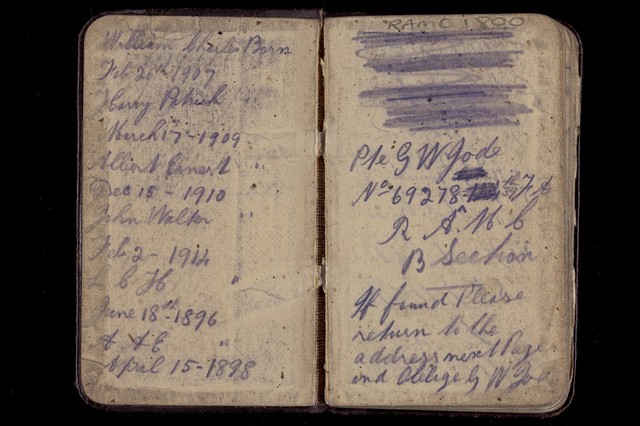 William Charles Born
Feb 26th 1907
Harry Patrick
March 17 - 1909
Albert Ernest "
Dec 15 - 1910
John Walter "
Feb 2 - 1914
"
June 18th 1896
"
April 15 - 1898
RAMC 1800
Pte G W Jode
No 69278 th F A
R A M C
B Section
If found Please
return to the
address next Page
and oblige G W